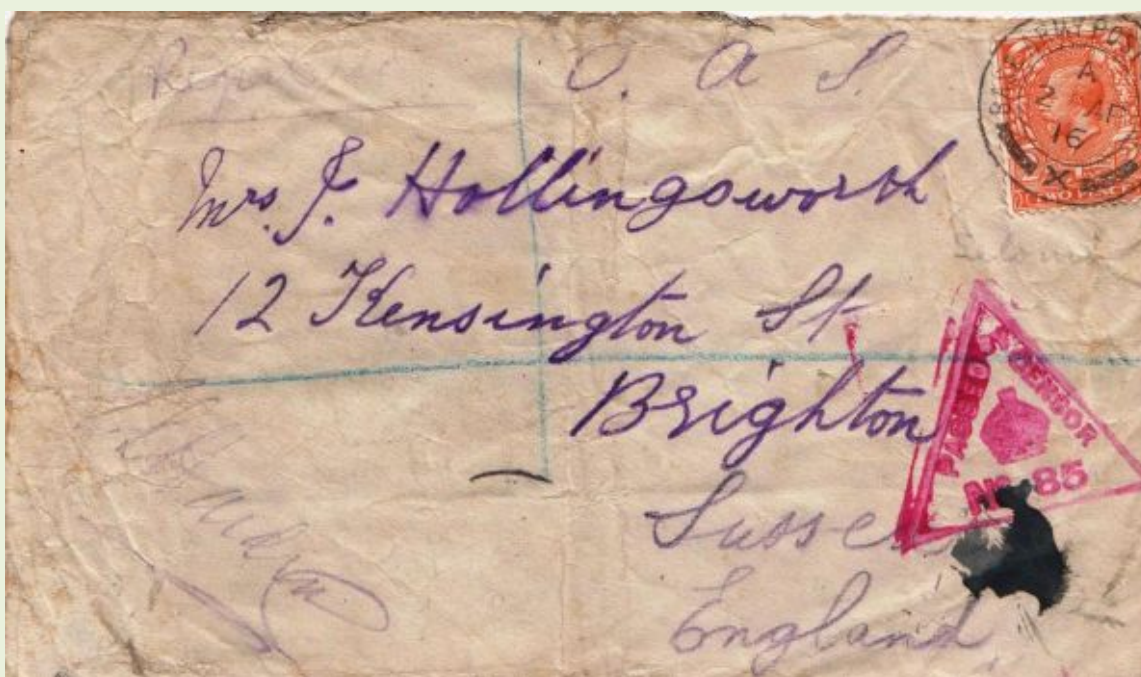 O. A. S.
Mrs. J. Hollingsworth
12 Kensington St
Brighton
Sussex
England
BASE ARMY POST
A
2 AP
16
X
PASSED BY CENSOR
No 85